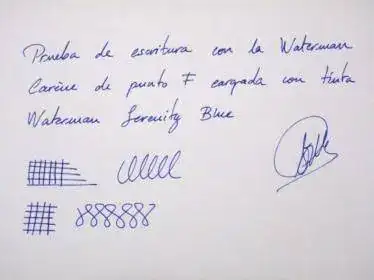 Prueba de escritura con la Waterman
Carène de punto F cargada con tinta
Waterman Serenity Blue